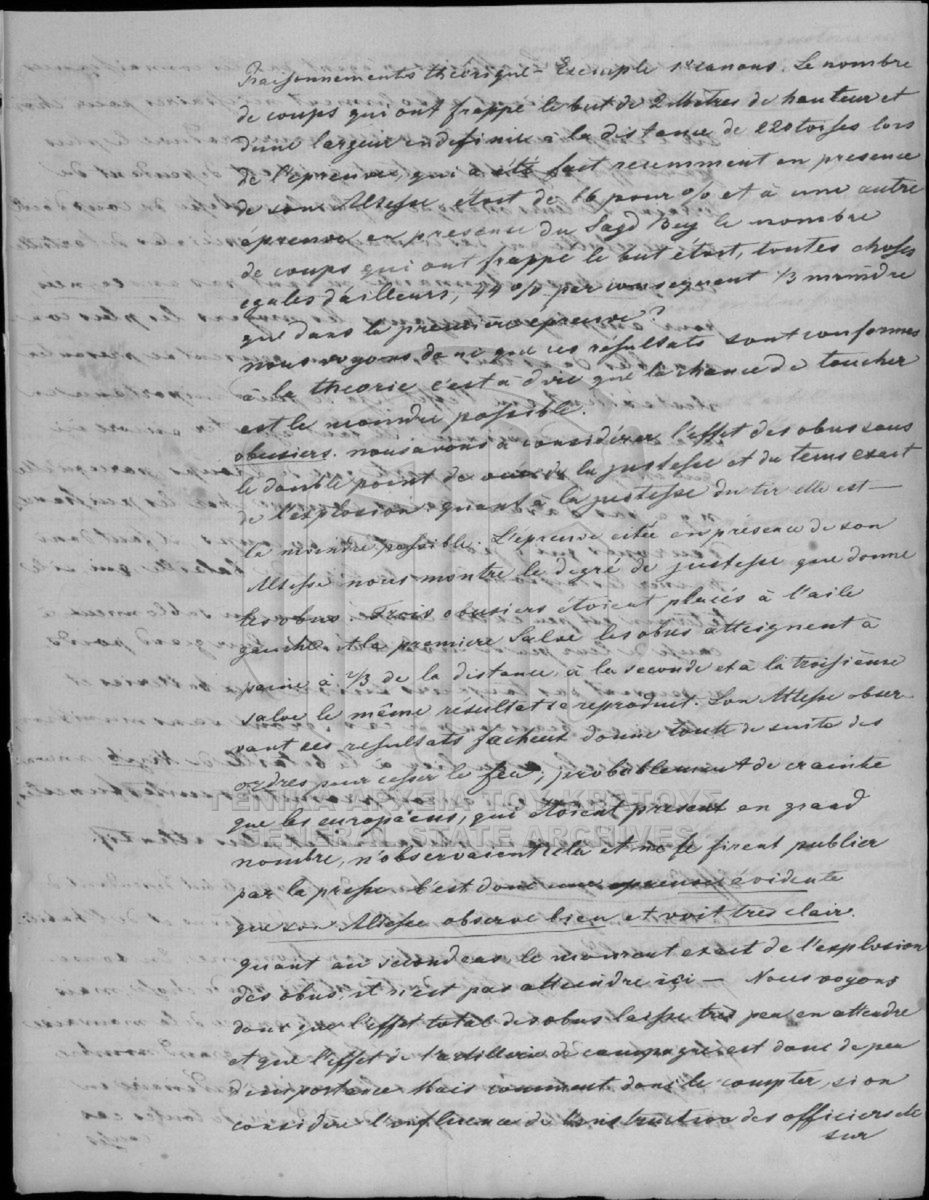 Raisonnements théorique – Exemple 1º canons. Le nombre
de coups qui ont frappé le but de 2 Mètres de hauteur et
d'une largeur indefinie à la distance de 220 toises lors
de l'epreuve, qui a été fait recemment en presence
de son Altesse étoit de 66 pour % et à une autre
épreuve en presence du Sayd Bey le nombre
de coups qui ont frappé le but étoit, toutes choses
egales d'ailleurs, 44 % par consequent 1/3 moindre
que dans la première epreuve?
nous voyons donc que ces résultats sont conformes
à la theorie c'est à dire que la chance de toucher
est le moindre possible.
obusiers. nous avons à considérer l'effet des obus sous
le double point de la justesse et du tems exact
de l'explosion, quant à la justesse du tir elle est –
la moindre possible. L'épreuve citée en presence de son
Altesse nous montre le degré de justesse que donne
les obus. Trois obusiers étoient placés à l'aile
gauche et la premiere Salve les obus atteignent à
paine à 1/3 de la distance, à la seconde et à la troisième
salve le même resultat se reproduit. Son Altesse obser-
vant ces resultats facheux donne toute de suite des
ordres pour cesser le feu, probablement de crainte
que les europaeens, qui étoient present en grand
nombre, n'observassent cela et ne le firent publier
par la presse. C'est donc une epreuve évidente
que son Altesse observe bien et voit tres clair.
quant au second cas, le moment exact de l'explosion
des obus, il n'est pas attendre ici – Nous voyons
donc que l'effet total des obus laisse très peu en attendre
et que l'effet de l'artillerie de campagne est donc de peu
d'importance. Mais comment donc le compter, si on
considère l'influence de l'instruction des officiers etc
sur
ΓΕΝΙΚΑ ΑΡΧΕΙΑ ΤΟΥ ΚΡΑΤΟΥΣ
GENERAL STATE ARCHIVES